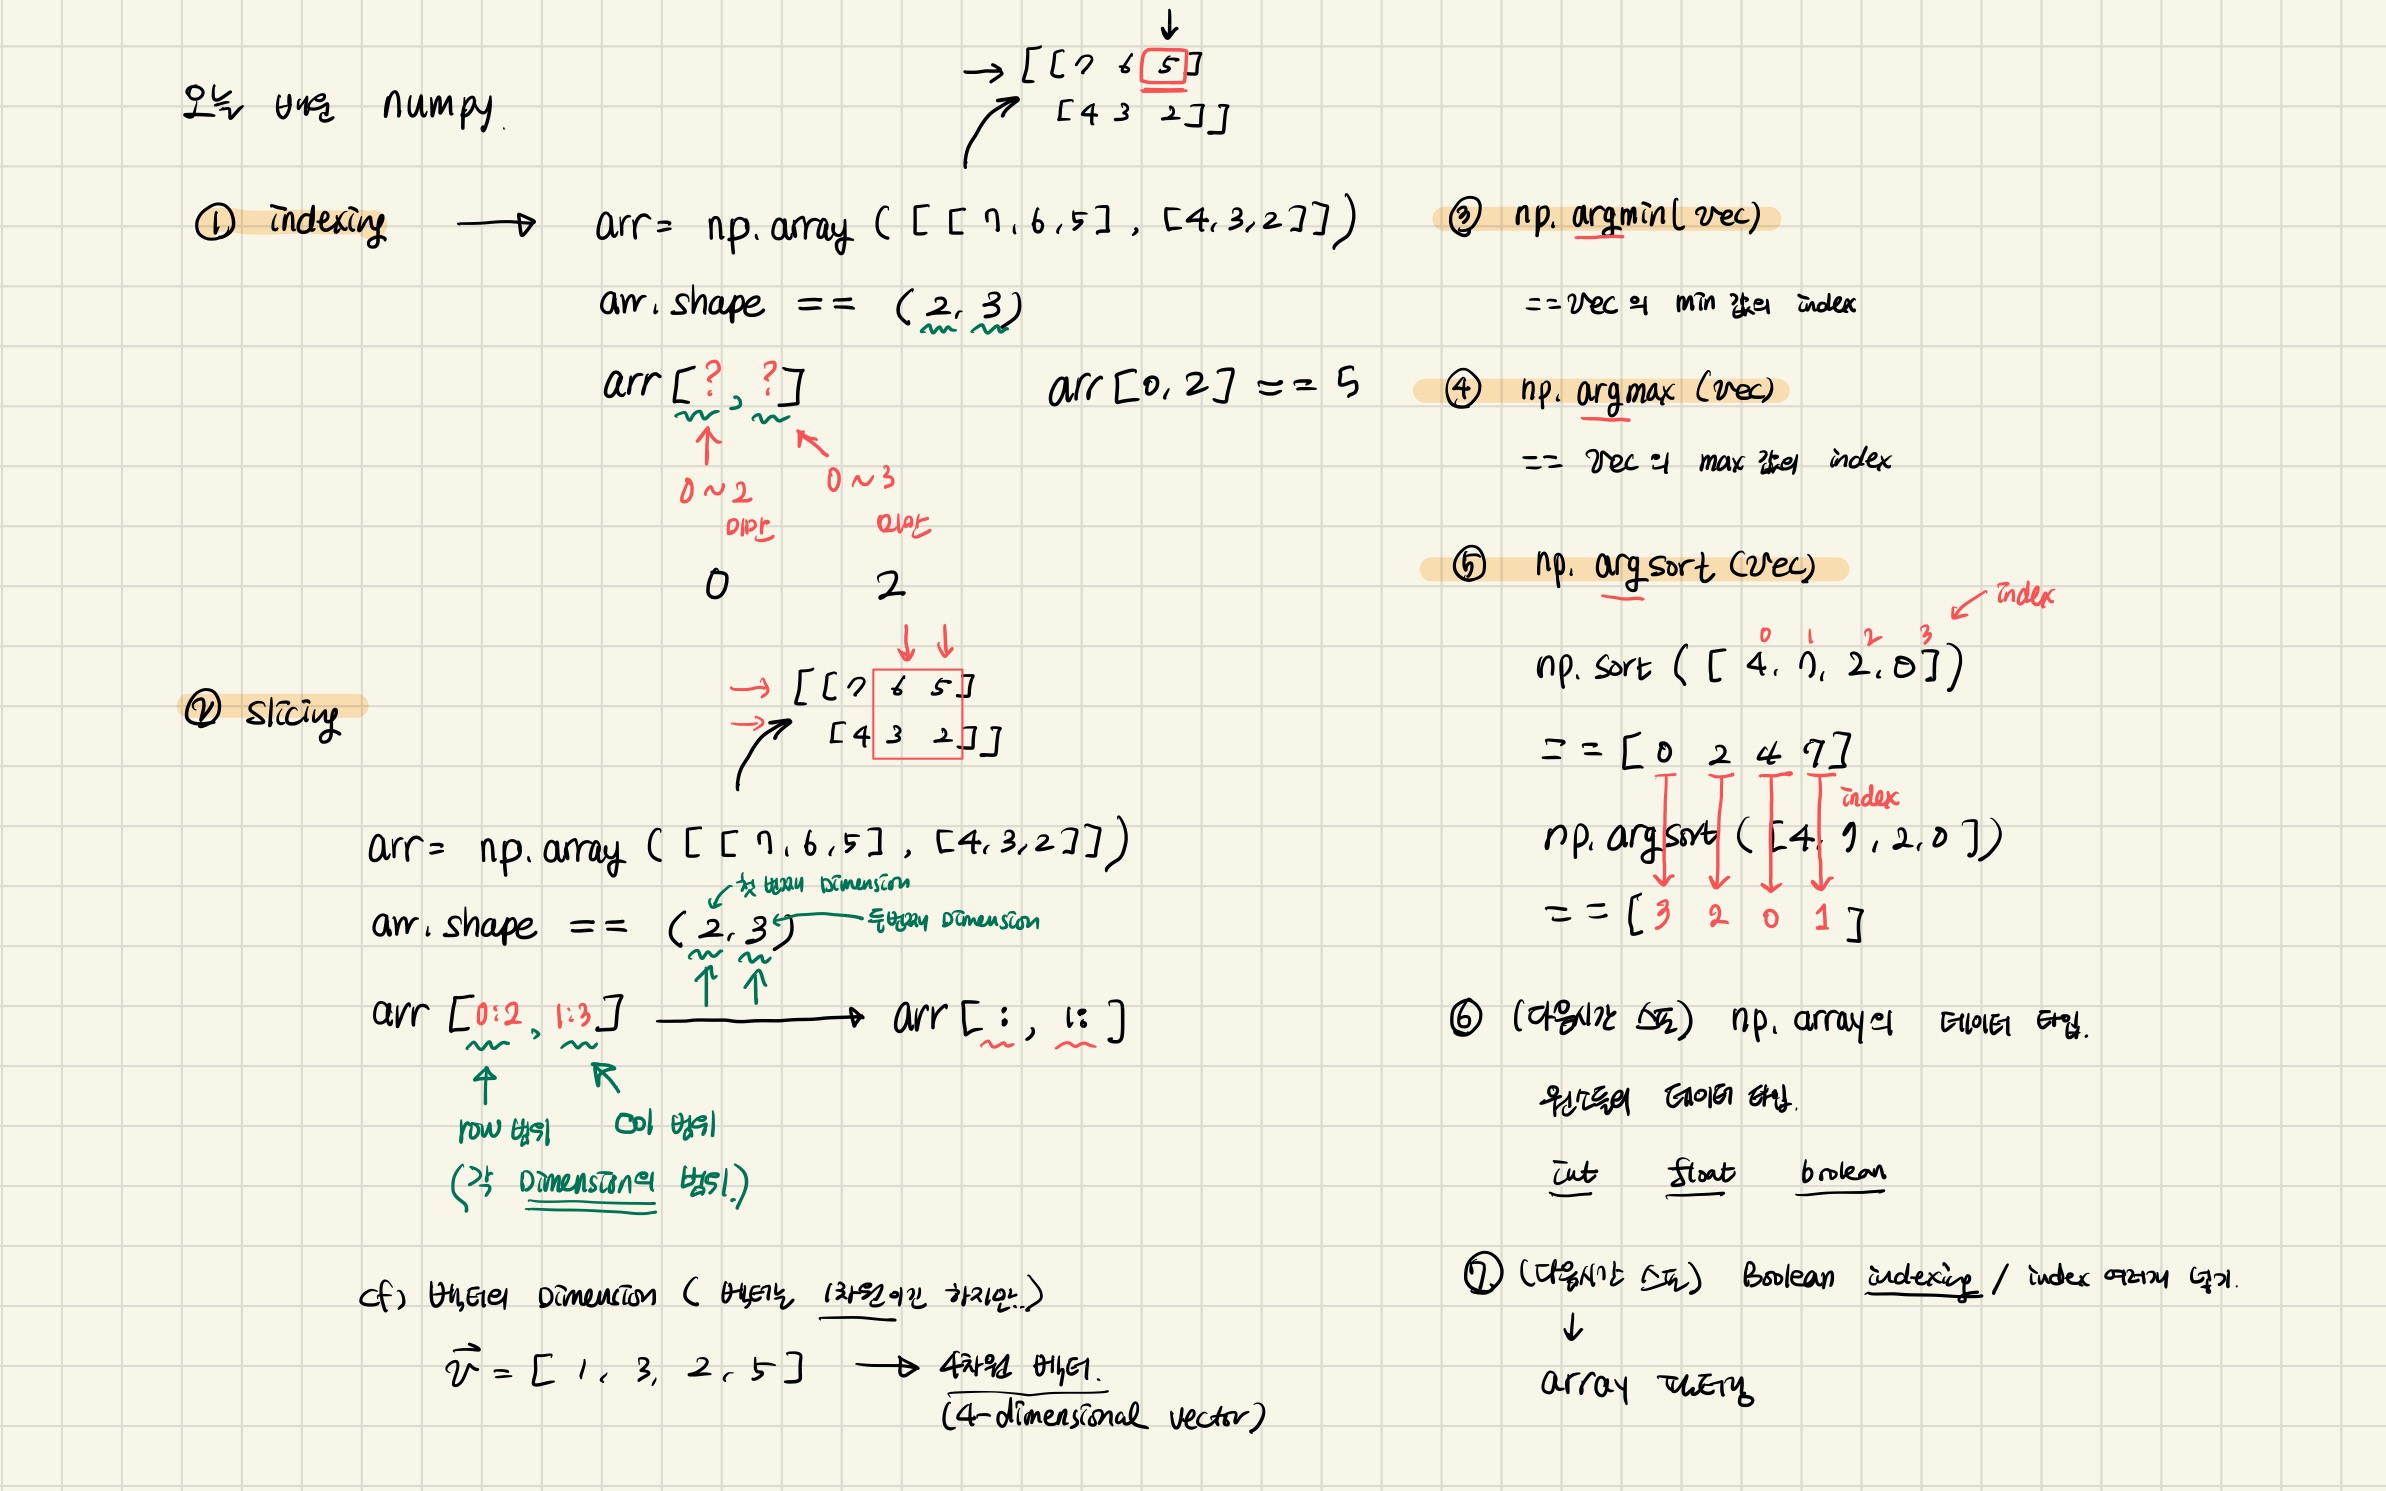 오늘 배운 numpy.
[[7 6 5]
[4 3 2]]
① indexing → arr = np.array([[7,6,5],[4,3,2]])
arr.shape == (2,3)
arr[?,?] arr[0,2] == 5
0~2 미만
0~3 미만
0 2
② slicing
[[7 6 5]
[4 3 2]]
arr = np.array([[7,6,5],[4,3,2]])
첫 번째 Dimension
arr.shape == (2,3) 두번째 Dimension
arr[0:2, 1:3] → arr[:, 1:]
row 범위 col 범위
(각 Dimension의 범위.)
cf) 벡터의 Dimension (벡터는 1차원이긴 하지만..)
v = [1, 3, 2, 5] → 4차원 벡터.
(4-dimensional vector)
③ np.argmin(vec)
== vec의 min 값의 index
④ np.argmax(vec)
== vec의 max 값의 index
⑤ np.argsort(vec)
0 1 2 3 index
np.sort([4, 7, 2, 0])
== [0 2 4 7]
index
np.argsort([4, 7, 2, 0])
== [3 2 0 1]
⑥ (다음시간 스포) np.array의 데이터 타입.
원소들의 데이터 타입.
int float boolean
⑦ (다음시간 스포) Boolean indexing / index 여러개 넣기.
↓
array 필터링